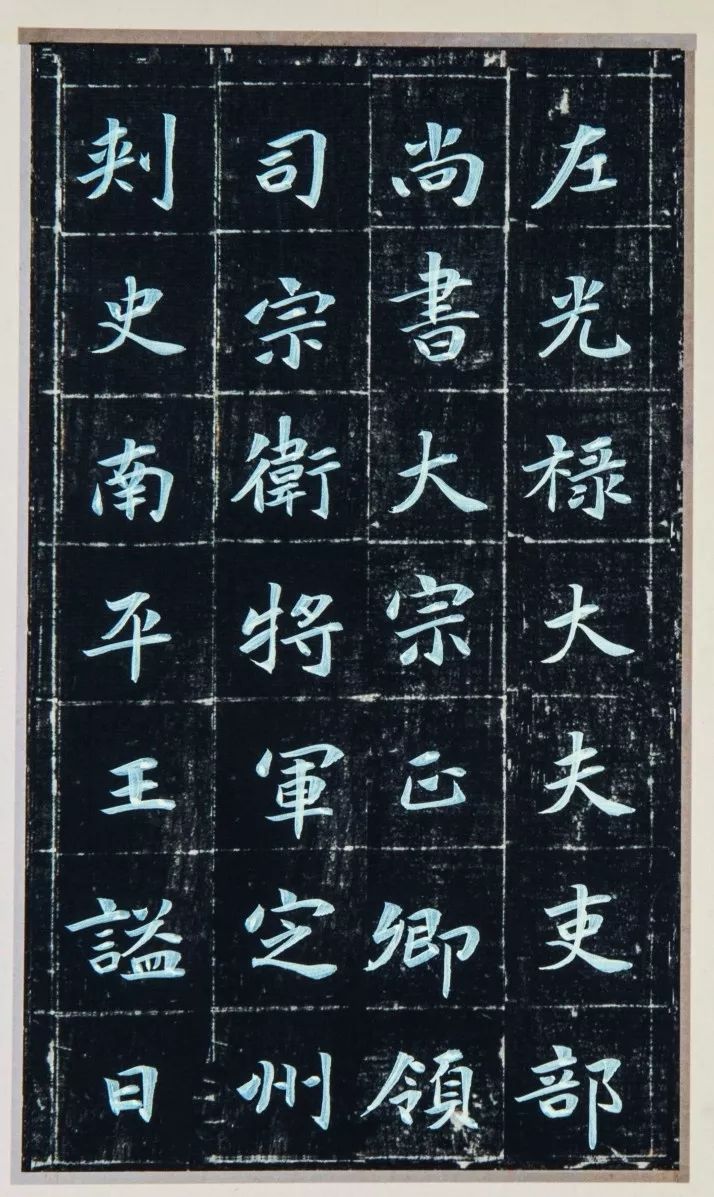 左光祿大夫吏部
尚書大宗正卿領
司宗衛將軍定州
刾史南平王謚曰